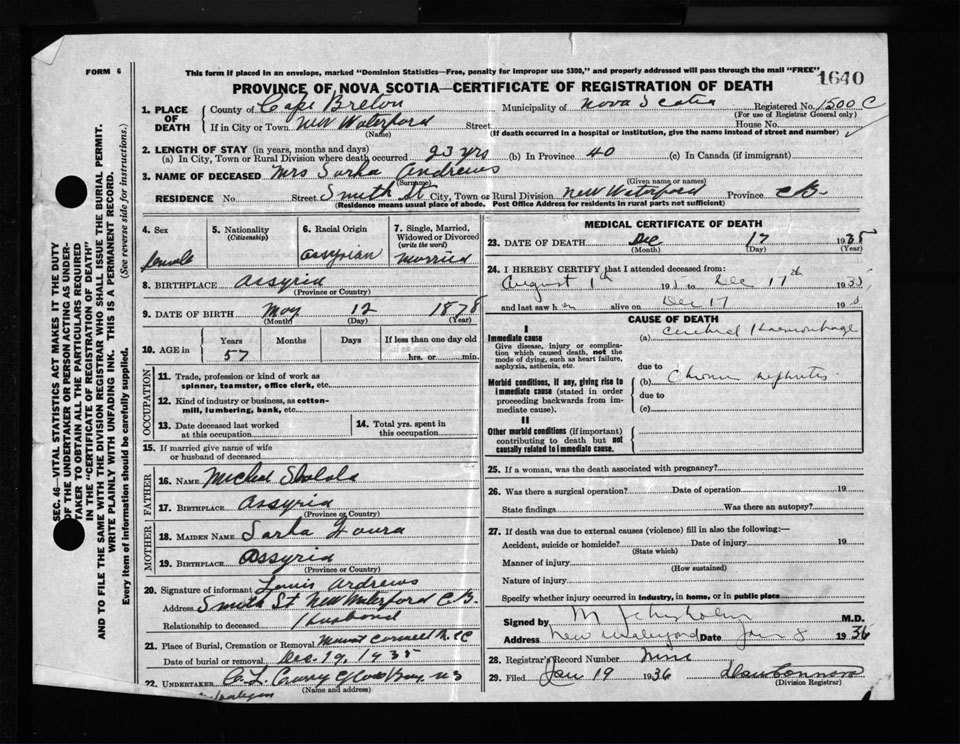 FORM 6
This form if placed in an envelope, marked "Dominion Statistics—Free, penalty for improper use $300," and properly addressed will pass through the mail "FREE"
1640
PROVINCE OF NOVA SCOTIA—CERTIFICATE OF REGISTRATION OF DEATH
1. PLACE OF DEATH
County of Cape Breton Municipality of Nova Scotia Registered No. 1500 C
(For use of Registrar General only)
If in City or Town New Waterford Street House No.
(Name) (If death occurred in a hospital or institution, give the name instead of street and number)
2. LENGTH OF STAY (in years, months and days)
(a) In City, Town or Rural Division where death occurred 23 yrs (b) In Province 40 (c) In Canada (if immigrant)
3. NAME OF DECEASED Mrs Sarka Andrews
(Surname) (Given name or names)
RESIDENCE No. Street Smith St City, Town or Rural Division New Waterford Province C B
(Residence means usual place of abode. Post Office Address for residents in rural parts not sufficient)
4. Sex
female
5. Nationality
(Citizenship)
6. Racial Origin
Assyrian
7. Single, Married, Widowed or Divorced
(write the word)
Married
8. BIRTHPLACE Assyria
(Province or Country)
9. DATE OF BIRTH May 12 1878
(Month) (Day) (Year)
10. AGE in
Years Months Days If less than one day old
57 hrs. or min.
OCCUPATION
11. Trade, profession or kind of work as spinner, teamster, office clerk, etc.
12. Kind of industry or business, as cotton-mill, lumbering, bank, etc.
13. Date deceased last worked at this occupation
14. Total yrs. spent in this occupation
15. If married give name of wife or husband of deceased
FATHER
16. NAME Micheal
17. BIRTHPLACE Assyria
(Province or Country)
MOTHER
18. MAIDEN NAME Sarka
19. BIRTHPLACE Assyria
(Province or Country)
20. Signature of informant Louis Andrews
Address Smith St New Waterford C B.
Relationship to deceased Husband
21. Place of Burial, Cremation or Removal Mount Carmel
Date of burial or removal Dec. 19, 1935
22. UNDERTAKER Curry Glace Bay, N S
(Name and address)
MEDICAL CERTIFICATE OF DEATH
23. DATE OF DEATH Dec 17 1935
(Month) (Day) (Year)
24. I HEREBY CERTIFY that I attended deceased from:
August 1th 193 to Dec 17th 1935
and last saw h er alive on Dec 17 19
CAUSE OF DEATH
I
Immediate cause
Give disease, injury or complication which caused death, not the mode of dying, such as heart failure, asphyxia, asthenia, etc.
(a) Cerebral Haemorrhage
due to
Morbid conditions, if any, giving rise to immediate cause (stated in order proceeding backwards from immediate cause).
(b) Chronic nephritis
due to
(c)
II
Other morbid conditions (if important) contributing to death but not causally related to immediate cause.
25. If a woman, was the death associated with pregnancy?
26. Was there a surgical operation? Date of operation 19
State findings Was there an autopsy?
27. If death was due to external causes (violence) fill in also the following:—
Accident, suicide or homicide? Date of injury 19
(State which)
Manner of injury
(How sustained)
Nature of injury
Specify whether injury occurred in Industry, in home, or in public place
Signed by M M.D.
Address New Waterford Date Jan 8 1936
28. Registrar's Record Number
29. Filed Jan 19 1936
(Division Registrar)
SEC. 46—VITAL STATISTICS ACT MAKES IT THE DUTY
OF THE UNDERTAKER OR PERSON ACTING AS UNDER-
TAKER TO OBTAIN ALL THE PARTICULARS REQUIRED
IN THE "CERTIFICATE OF REGISTRATION OF DEATH"
AND TO FILE THE SAME WITH THE DIVISION REGISTRAR WHO SHALL ISSUE THE BURIAL PERMIT.
WRITE PLAINLY WITH UNFADING INK. THIS IS A PERMANENT RECORD.
Every item of information should be carefully supplied. (See reverse side for instructions.)